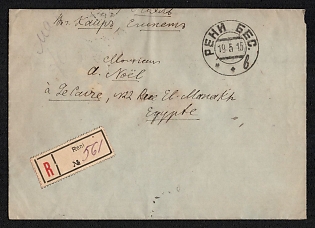 Кепръ, Египетъ
РЕНИ БЕС.
19 5 15
в
Monsieur
A. Noël
à Le Caire, 22 Rue El-Manakh
Egypte
Reni
R
№ 561